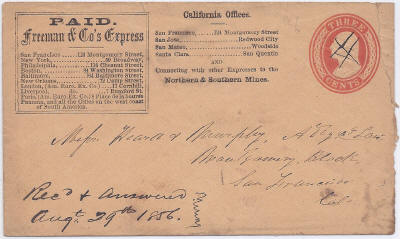 PAID.
Freeman & Co's Express
San Francisco, 124 Montgomery Street,
New York, 59 Broadway,
Philadelphia, 116 Chesnut Street,
Boston, Washington Street,
Baltimore, Baltimore Street,
New Orleans, Camp Street,
London, (Am. Eur. Ex. Co.) Cornhill,
Liverpool, do.
Paris, (Am. Eur. Ex. Co.) Place de la Bourse
Panama, and all the Cities on the west coast
of South America.
California Offices.
San Francisco, 124 Montgomery Street
San Jose, Redwood City
San Mateo, Woodside
Santa Clara, San Quentin
AND
Connecting with other Expresses to the
Northern & Southern Mines.
THREE
CENTS
Messrs Heard & Murphy, Atty's at Law
Montgomery Block
San Francisco
Cal
Rec'd & Answered
Augt. 29th 1856.